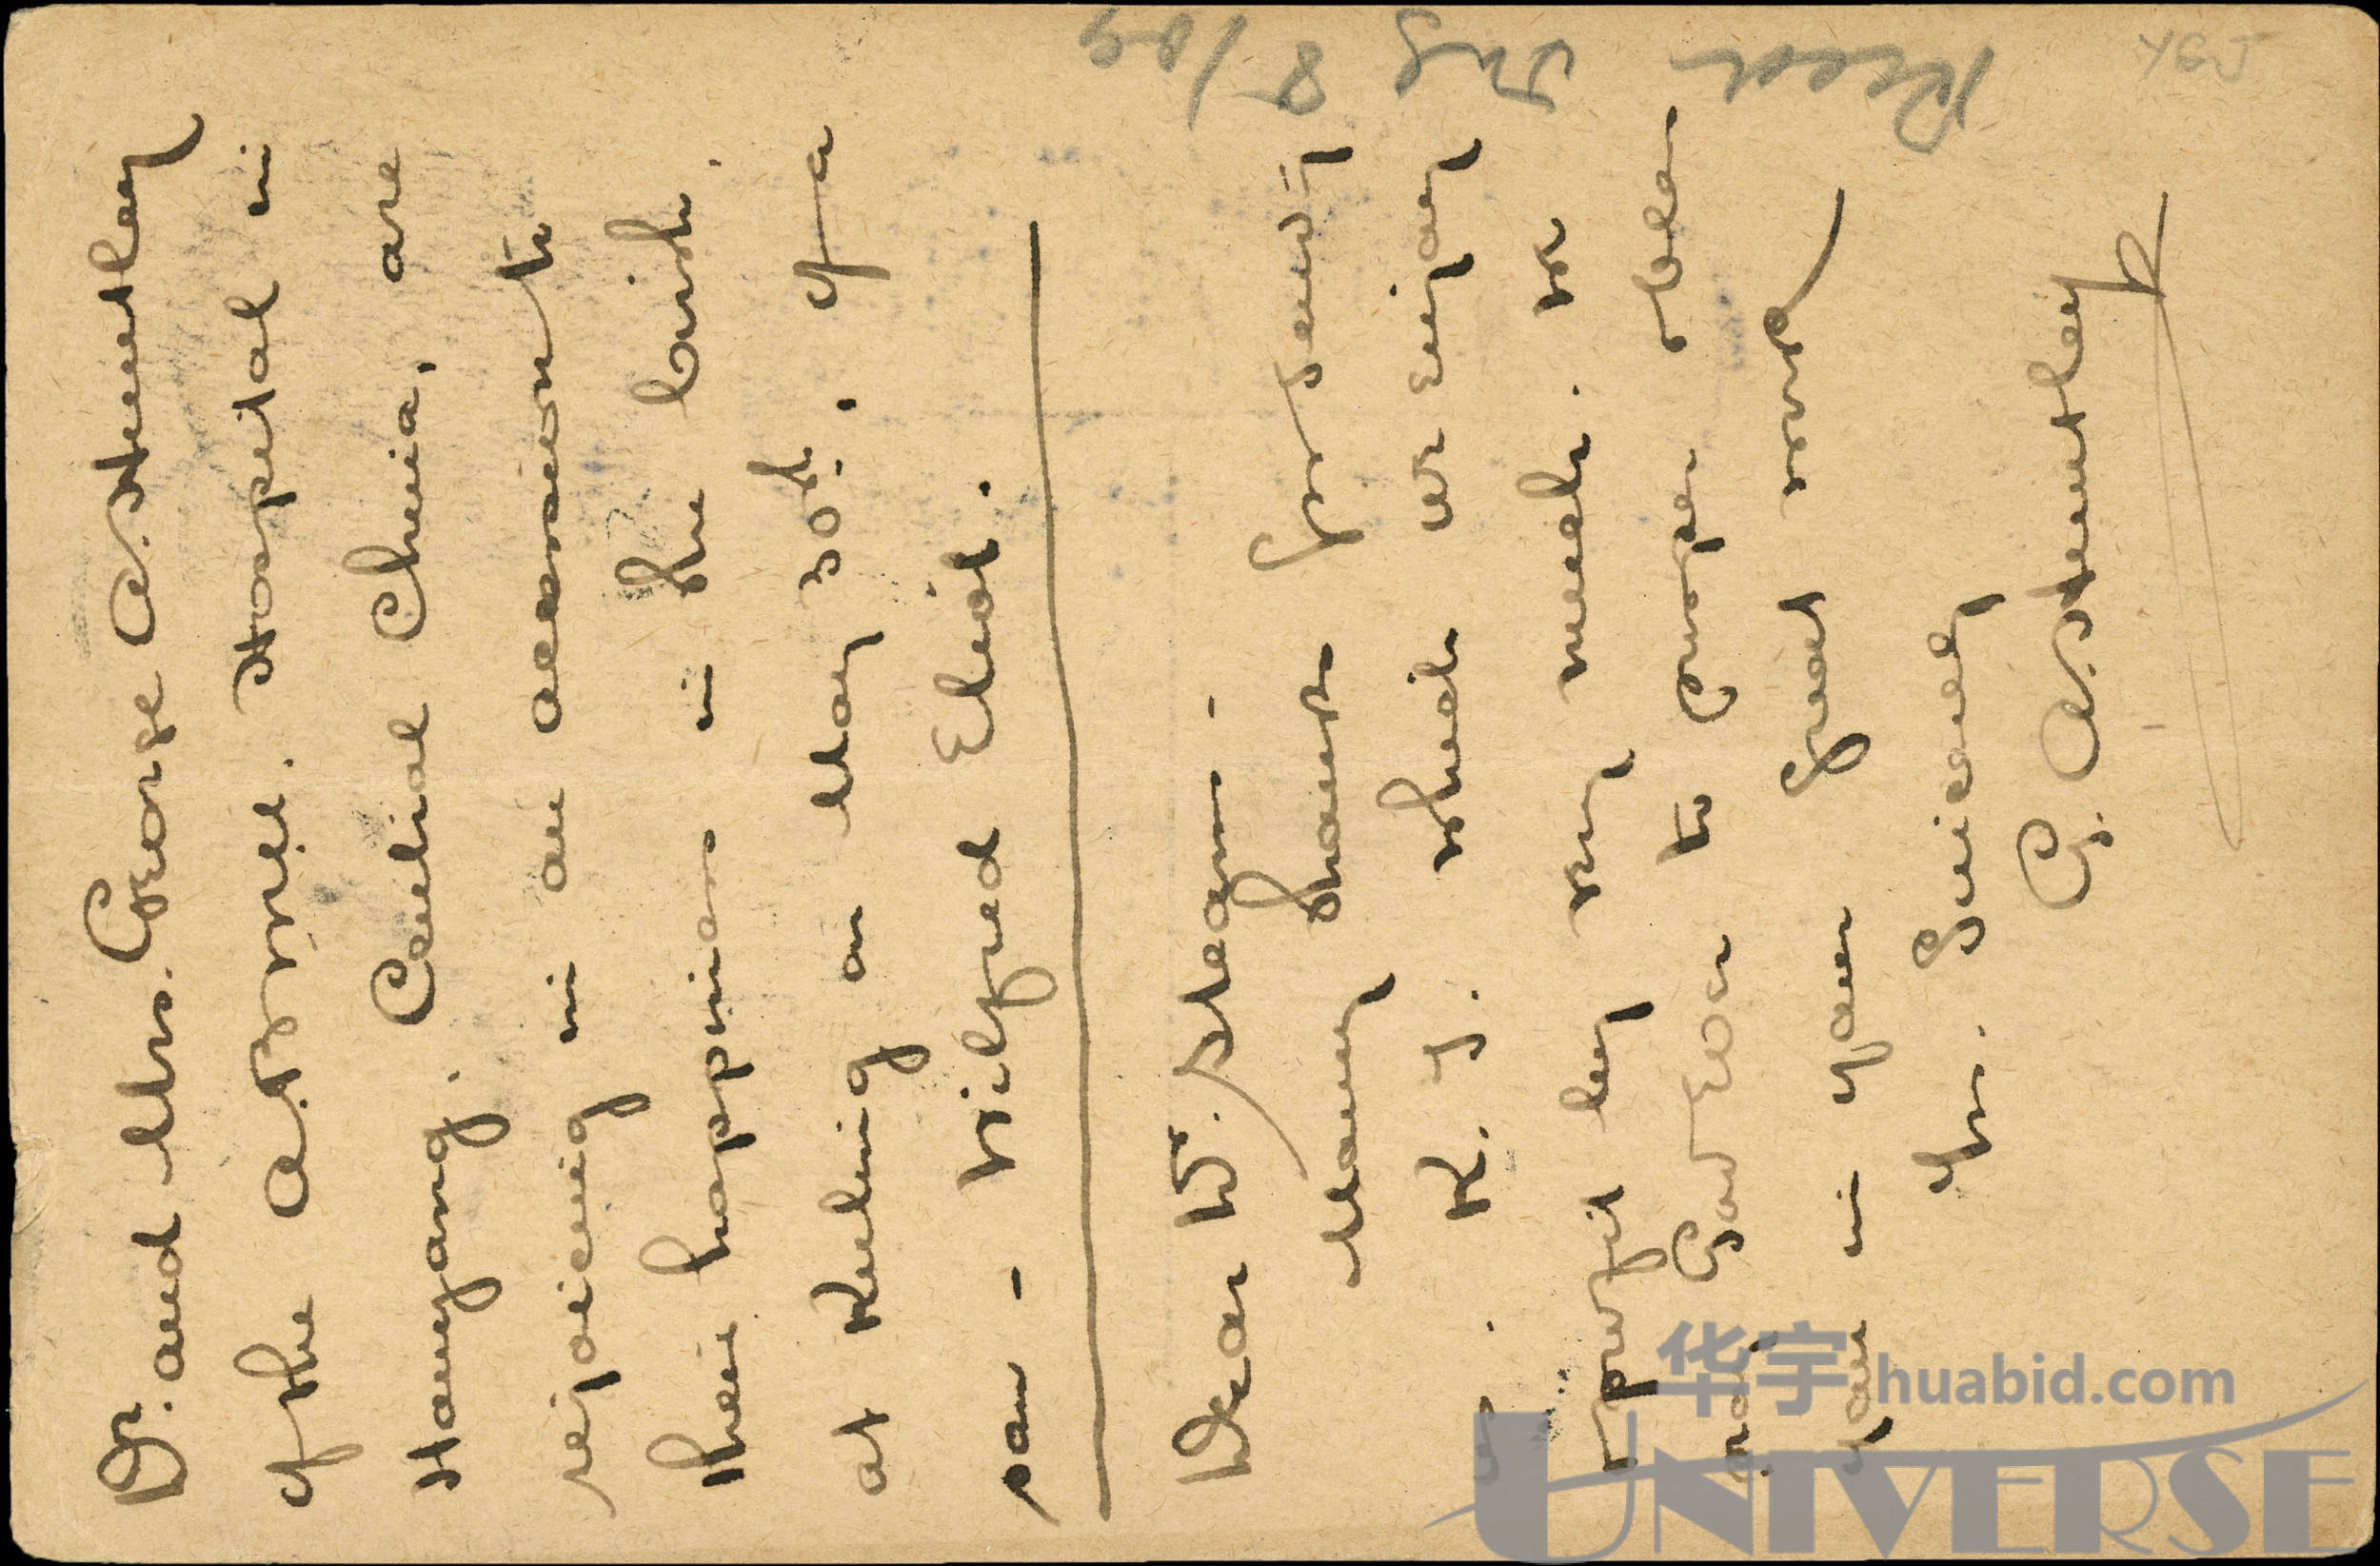 Dr. and Mrs. George A. Huntley
of the A.B.M.U. Hospital in
Hanyang. Central China, are
rejoicing in an accession to
their happiness in the birth.
at Kuling on May 30th. of a
son - Wilfred Eliot.
Dear W. Sleam.
Many thanks for sending
us. K. J. which we enjoy
& profit by very much. We
pray God will to prosper
you in your great work
Yrs. Sincerely
G. A. Huntley
Recd July 8/09
华宇 huabid.com
UNIVERSE